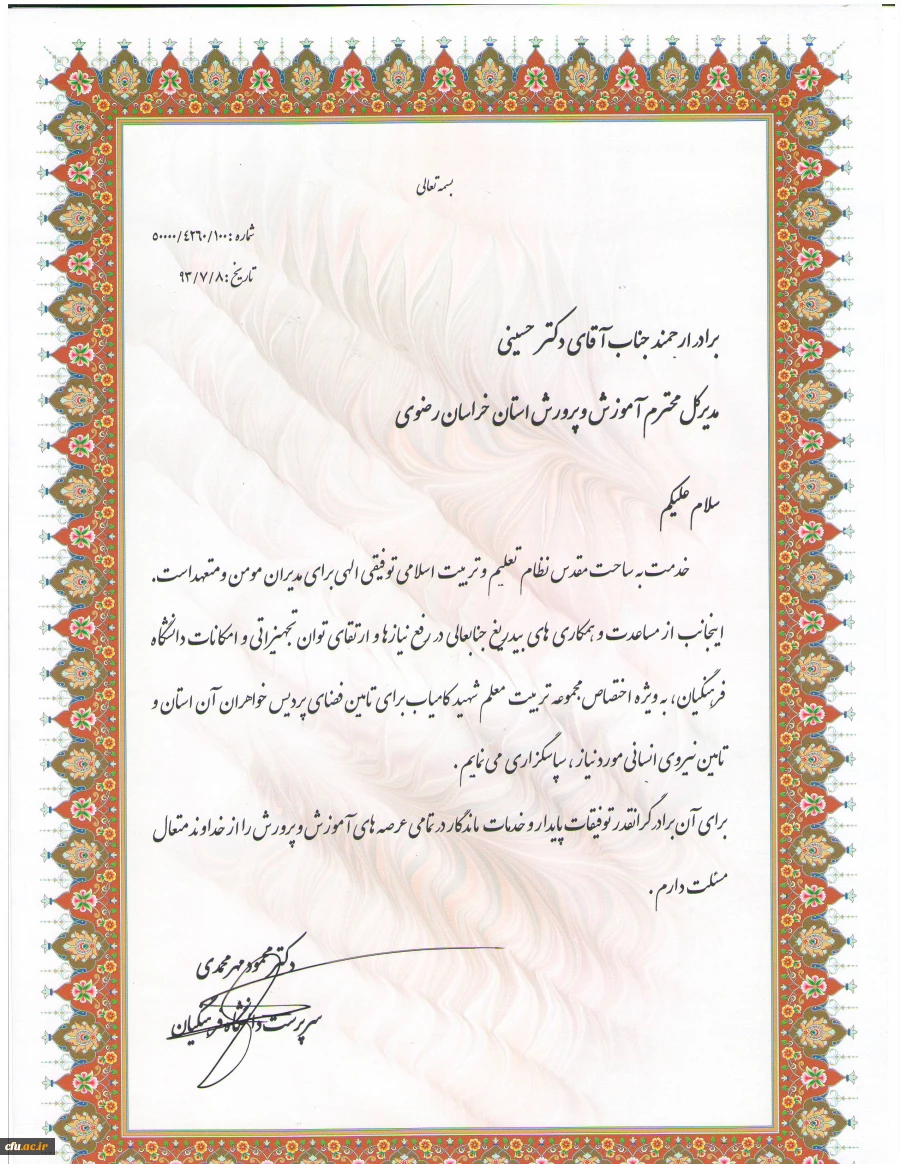 بسمه تعالی
شماره : ۵۰۰۰۰/۴۲۶۰/۱۰۰
تاریخ : ۹۳/۷/۸
برادر ارجمند جناب آقای دکتر حسینی
مدیرکل محترم آموزش و پرورش استان خراسان رضوی
سلام علیکم
خدمت به ساحت مقدس نظام تعلیم و تربیت اسلامی توفیقی الهی برای مدیران مومن و متعهد است.
اینجانب از مساعدت و همکاری های بیدریغ جنابعالی در رفع نیازها و ارتقای توان تجهیزاتی و امکانات دانشگاه
فرهنگیان، به ویژه اختصاص مجموعه تربیت معلم شهید کامیاب برای تامین فضای پردیس خواهران آن استان و
تامین نیروی انسانی مورد نیاز ، سپاسگزاری می نمایم .
برای آن برادر گرانقدر توفیقات پایدار و خدمات ماندگار در تمامی عرصه های آموزش و پرورش را از خداوند متعال
مسئلت دارم .
دکتر محمود مهرمحمدی
سرپرست دانشگاه فرهنگیان
cfu.ac.ir